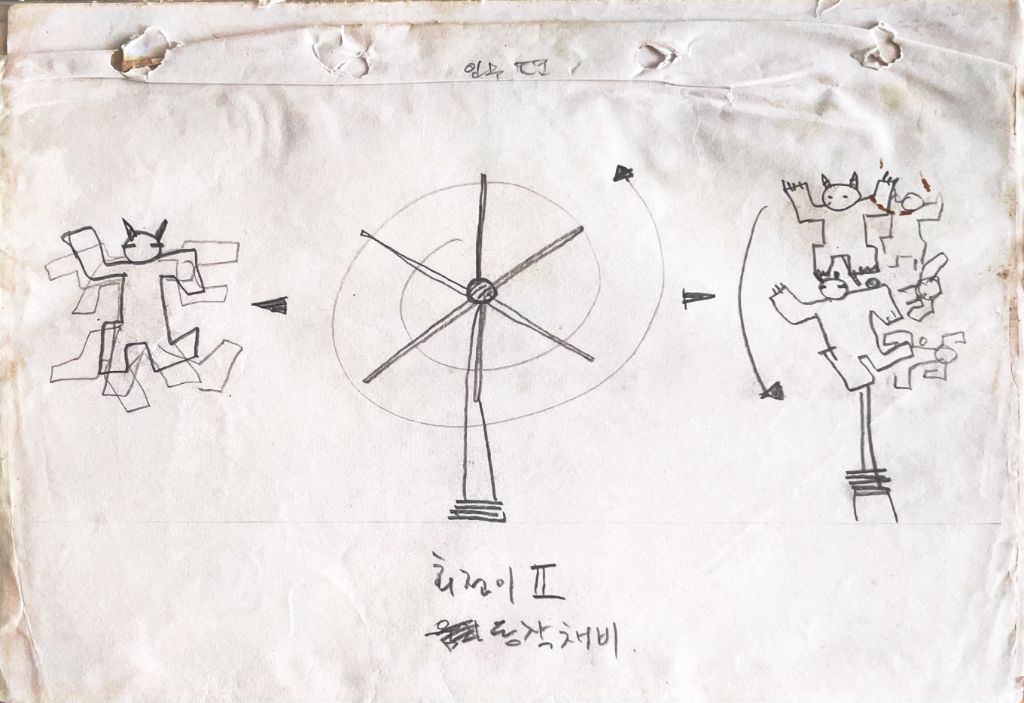 회전이 II
동작채비.